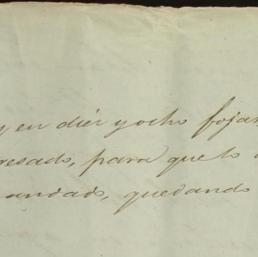 y en diéz y ocho fojas
resado, para que lo
andado, quedando